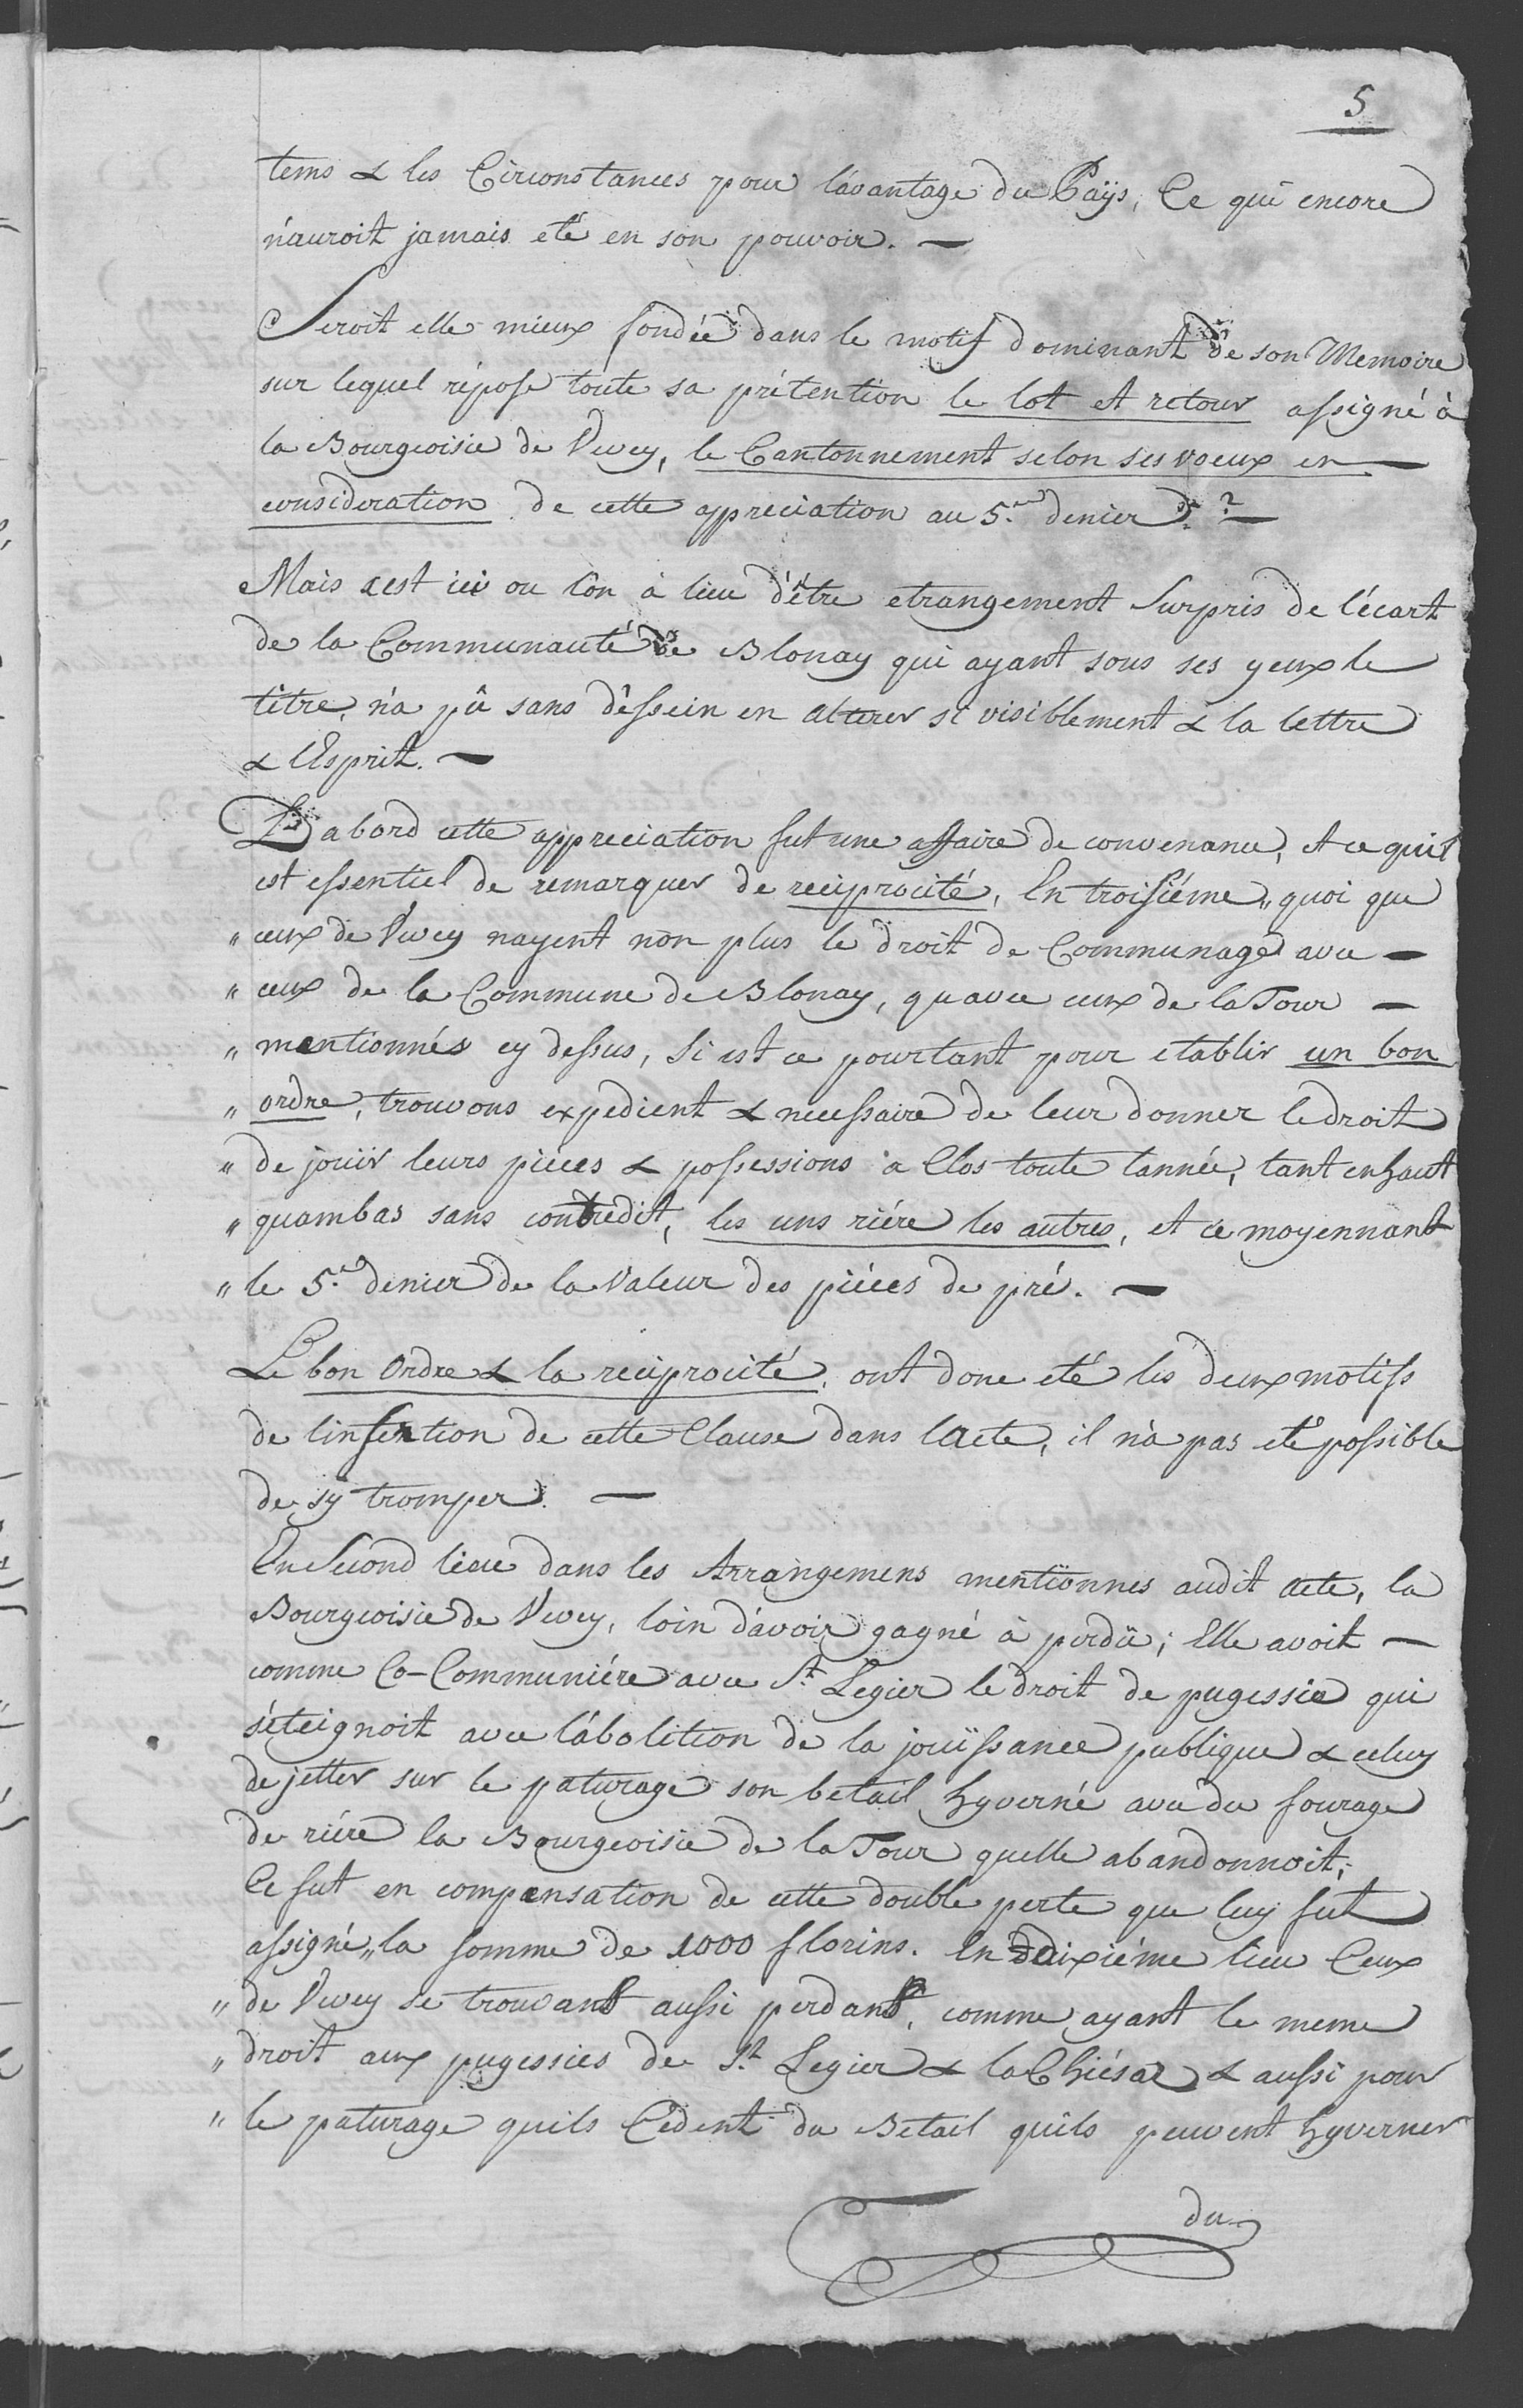 5
tems & les Circonstances pour l'avantage du Paÿs, Ce qui encore
n'auroit jamais eté en son pouvoir. —
Seroit elle mieux fondée dans le motif dominant de son Memoire
sur lequel répose toute sa prétention le lot et retour assigné à
la Bourgeoisie de Vevey, le Cantonnement selon ses voeux en —
consideration de cette appreciation au 5.e denier ? —
Mais c'est ici ou l'on à lieu d'être etrangement Surpris de l'écart
de la Communauté de Blonay qui ayant sous ses yeux le
titre, n'a pû sans dèssein en alterer si visiblement & la lettre
& l'Esprit. —
D'abord cette appreciation fut une affaire de convenance, et ce qu'il
est essentiel de remarquer de reciprocité, En troisiéme „ quoi que
„ ceux de Vevey nayent non plus le droit de Communage avec —
„ ceux de la Commune de Blonay, qu'avec ceux de la Tour —
„ mentionnés cy dessus, si est ce pourtant pour etablir un bon
„ ordre, trouvons expedient & necessaire de leur donner le droit
„ de jouir leurs piéces & possessions à Clos toute l'année, tant enhaut
„ quambas sans contredit, les uns riére les autres, et ce moyennant
„ le 5.e denier de la Valeur des piéces de pré. —
Le bon Ordre & la reciprocité, ont donc eté les deux motifs
de l'insertion de cette Clause dans l'Acte, il n'a pas eté possible
de s'y tromper. —
En Second lieu dans les Arrangemens mentionnes audit acte, la
Bourgeoisie de Vevey, loin d'avoir gagné à perdü; Elle avoit —
comme Co-Communiére avec St. Legier le droit de pugessie qui
s'éteignoit avec l'abolition de la jouïssance publique & celuy
de jetter sur le paturage son betail hyverné avec du fourage
de riére la Bourgeoisie de la Tour quelle abandonnoit;
Ce fut en compensation de cette double perte que luy fut
assigné „ la somme de 1000 florins. En dixiéme lieu Ceux
„ de Vevey se trouvant aussi perdant, comme ayant le meme
„ droit aux pugessies de St. Legier & la Chiésaz & aussi pour
„ le paturage quils Cedent du Betail quils peuvent hyverner
du